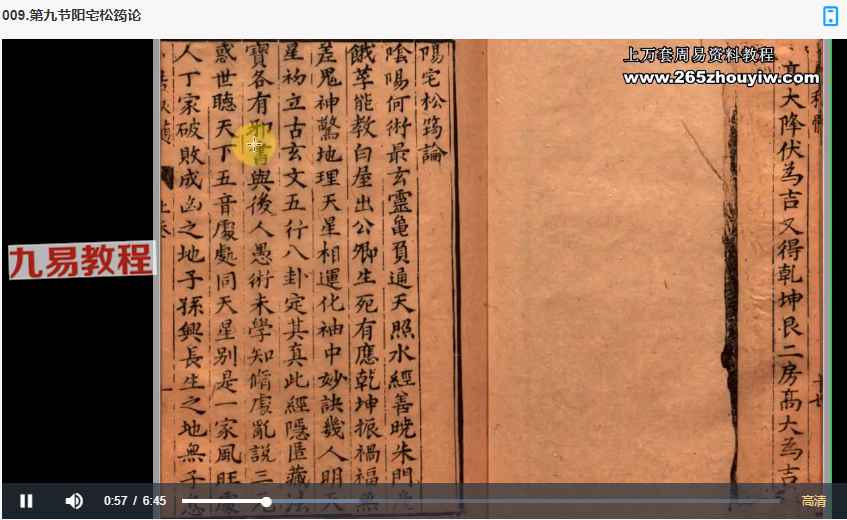 009.第九节阳宅松筠论
上万套周易资料教程
www.265zhouyiw.com
高大降伏為吉又得乾坤艮二房高大為吉
陽宅松筠論
陰陽何術最玄靈龜頁通天照水經善曉朱門
餓莩能教白屋出公卿生死有應乾坤振禍福無
差鬼神驚地理天星相運化袖中妙訣幾人明天
星初立古玄文五行八卦定其真此經隱匿藏法
寶各有邪書與後人愚術未學知脩處亂說三元
惑世聽天下五音處處同天星别是一家風旺處
人丁家破敗成凶之地子孫興長生之地無子息
九易教程
0:57 / 6:45
高清